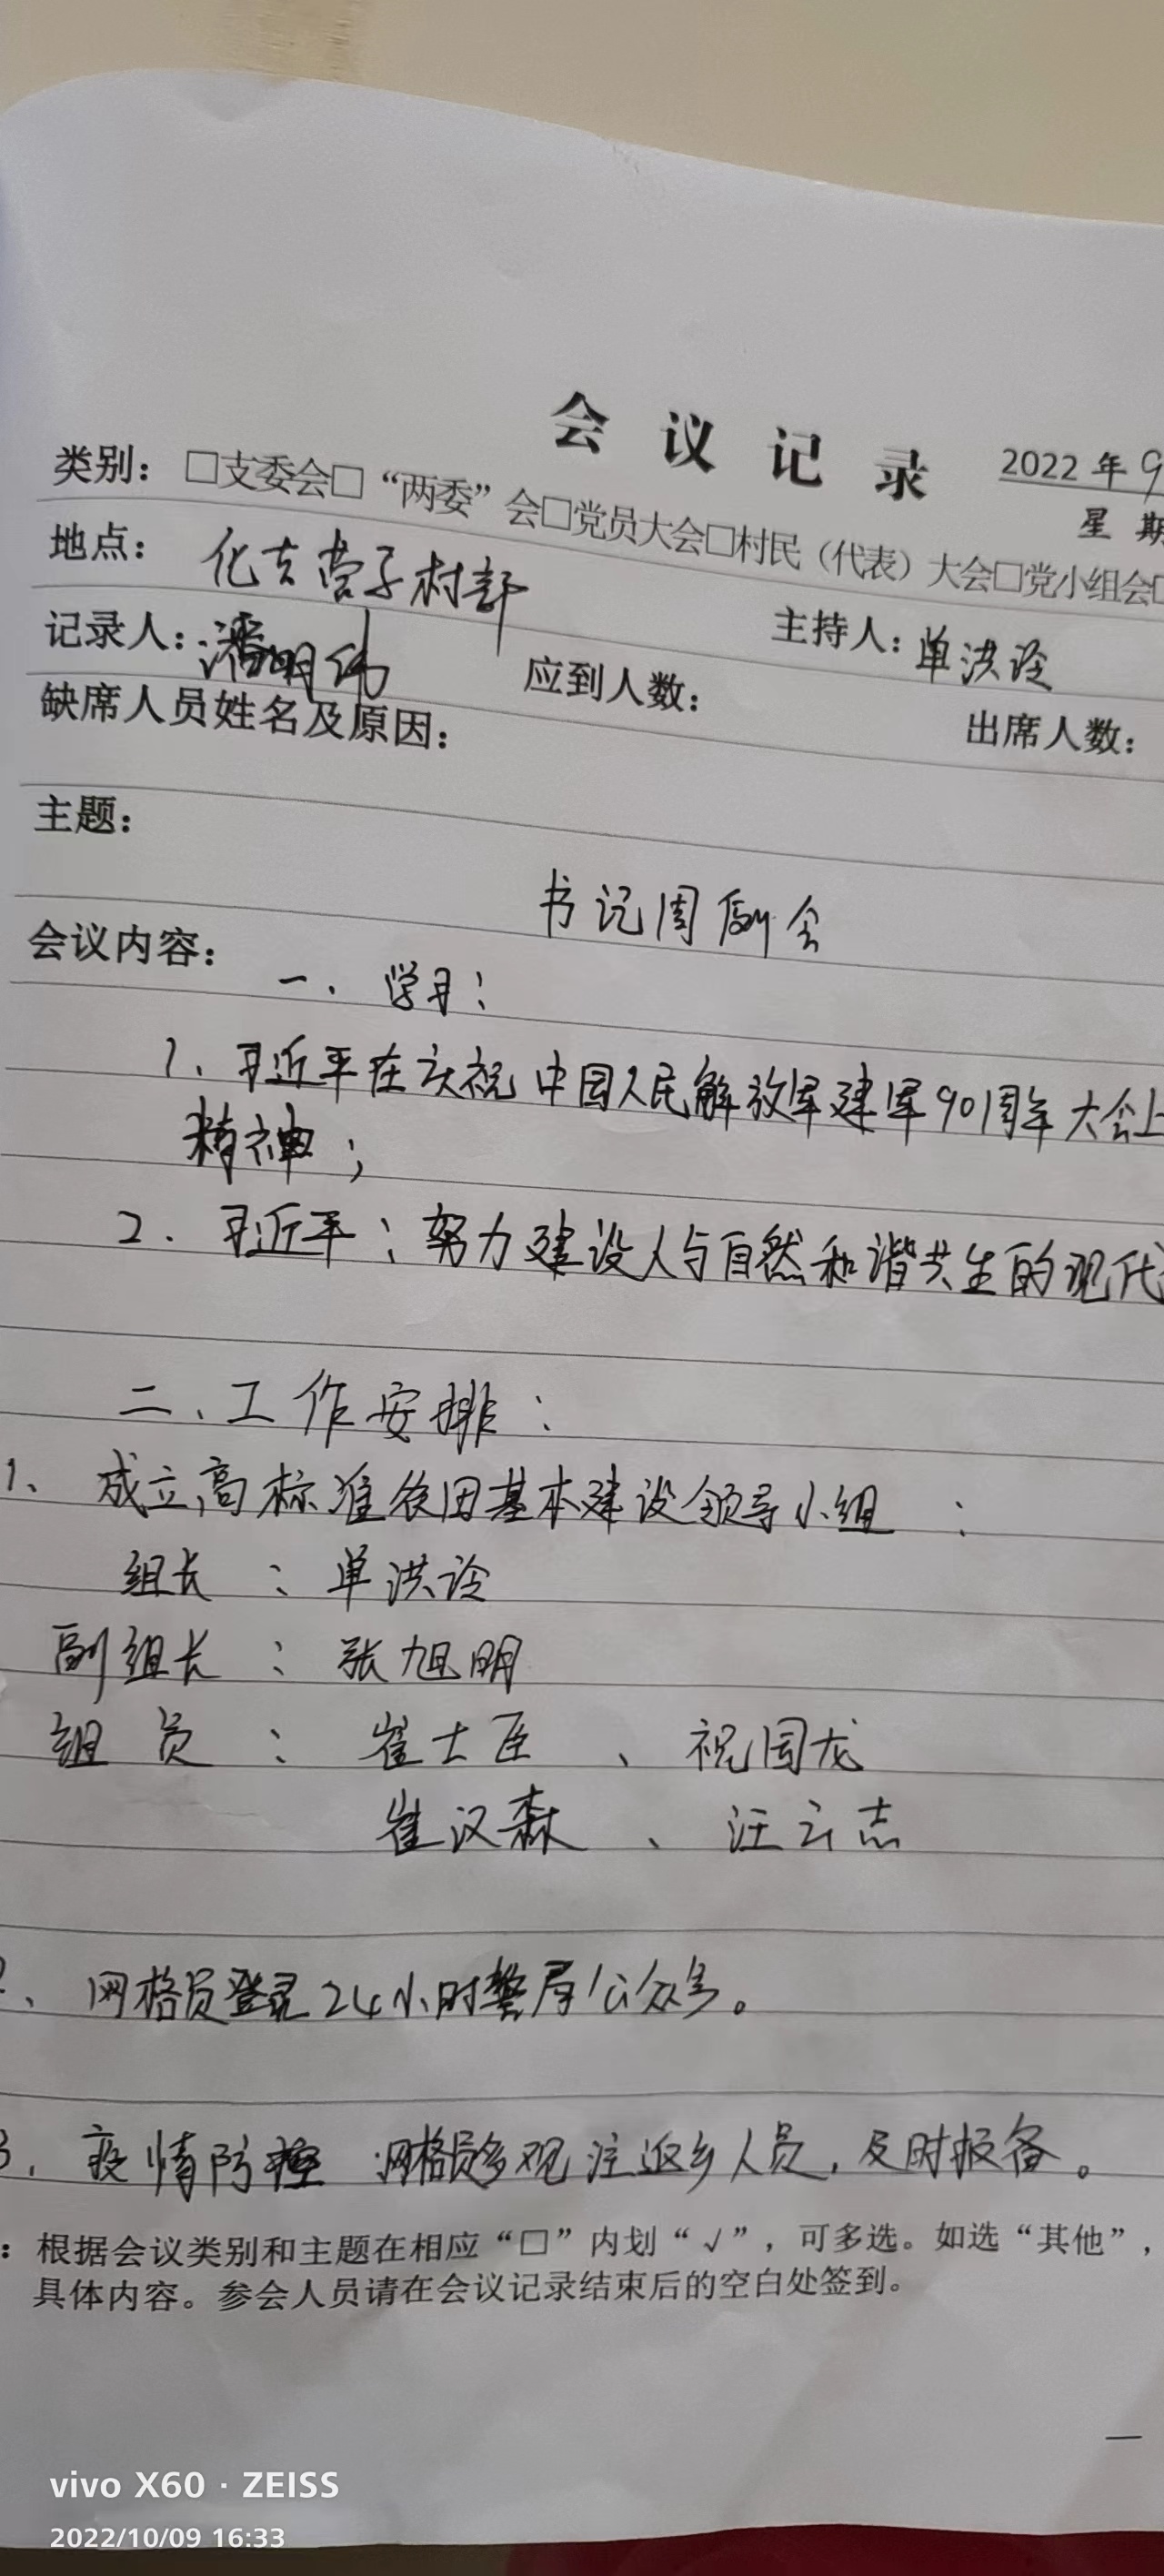 会议记录
2022年9
星期
类别：□支委会□“两委”会□党员大会□村民（代表）大会□党小组会□
地点：化吉营子村部
主持人：单洪玲
记录人：潘明伟
应到人数：
出席人数：
缺席人员姓名及原因：
主题：
书记周例会
会议内容：
一、学习：
1、习近平在庆祝中国人民解放军建军90周年大会上
精神；
2、习近平：努力建设人与自然和谐共生的现代
二、工作安排：
1、成立高标准农田基本建设领导小组：
组长：单洪玲
副组长：张旭明
组员：崔士臣、祝国龙
崔汉森、汪云志
2、网格员登录24小时警局公众号。
3、疫情防控 网格员多观注返乡人员，及时报备。
：根据会议类别和主题在相应“□”内划“√”，可多选。如选“其他”，
具体内容。参会人员请在会议记录结束后的空白处签到。
—
vivo X60 · ZEISS
2022/10/09 16:33